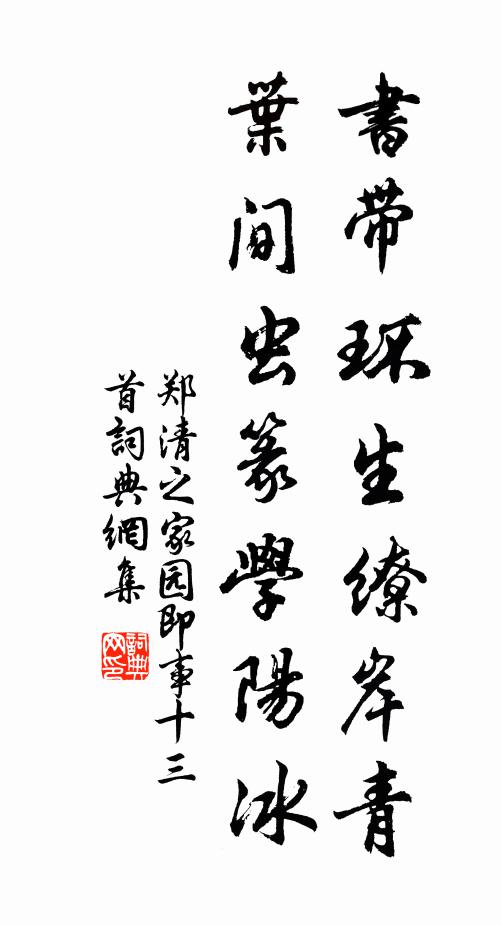 書帶环生繚岸青
葉间虫篆學陽冰
郑清之家园即事十三
首詞典網集
詞典网印